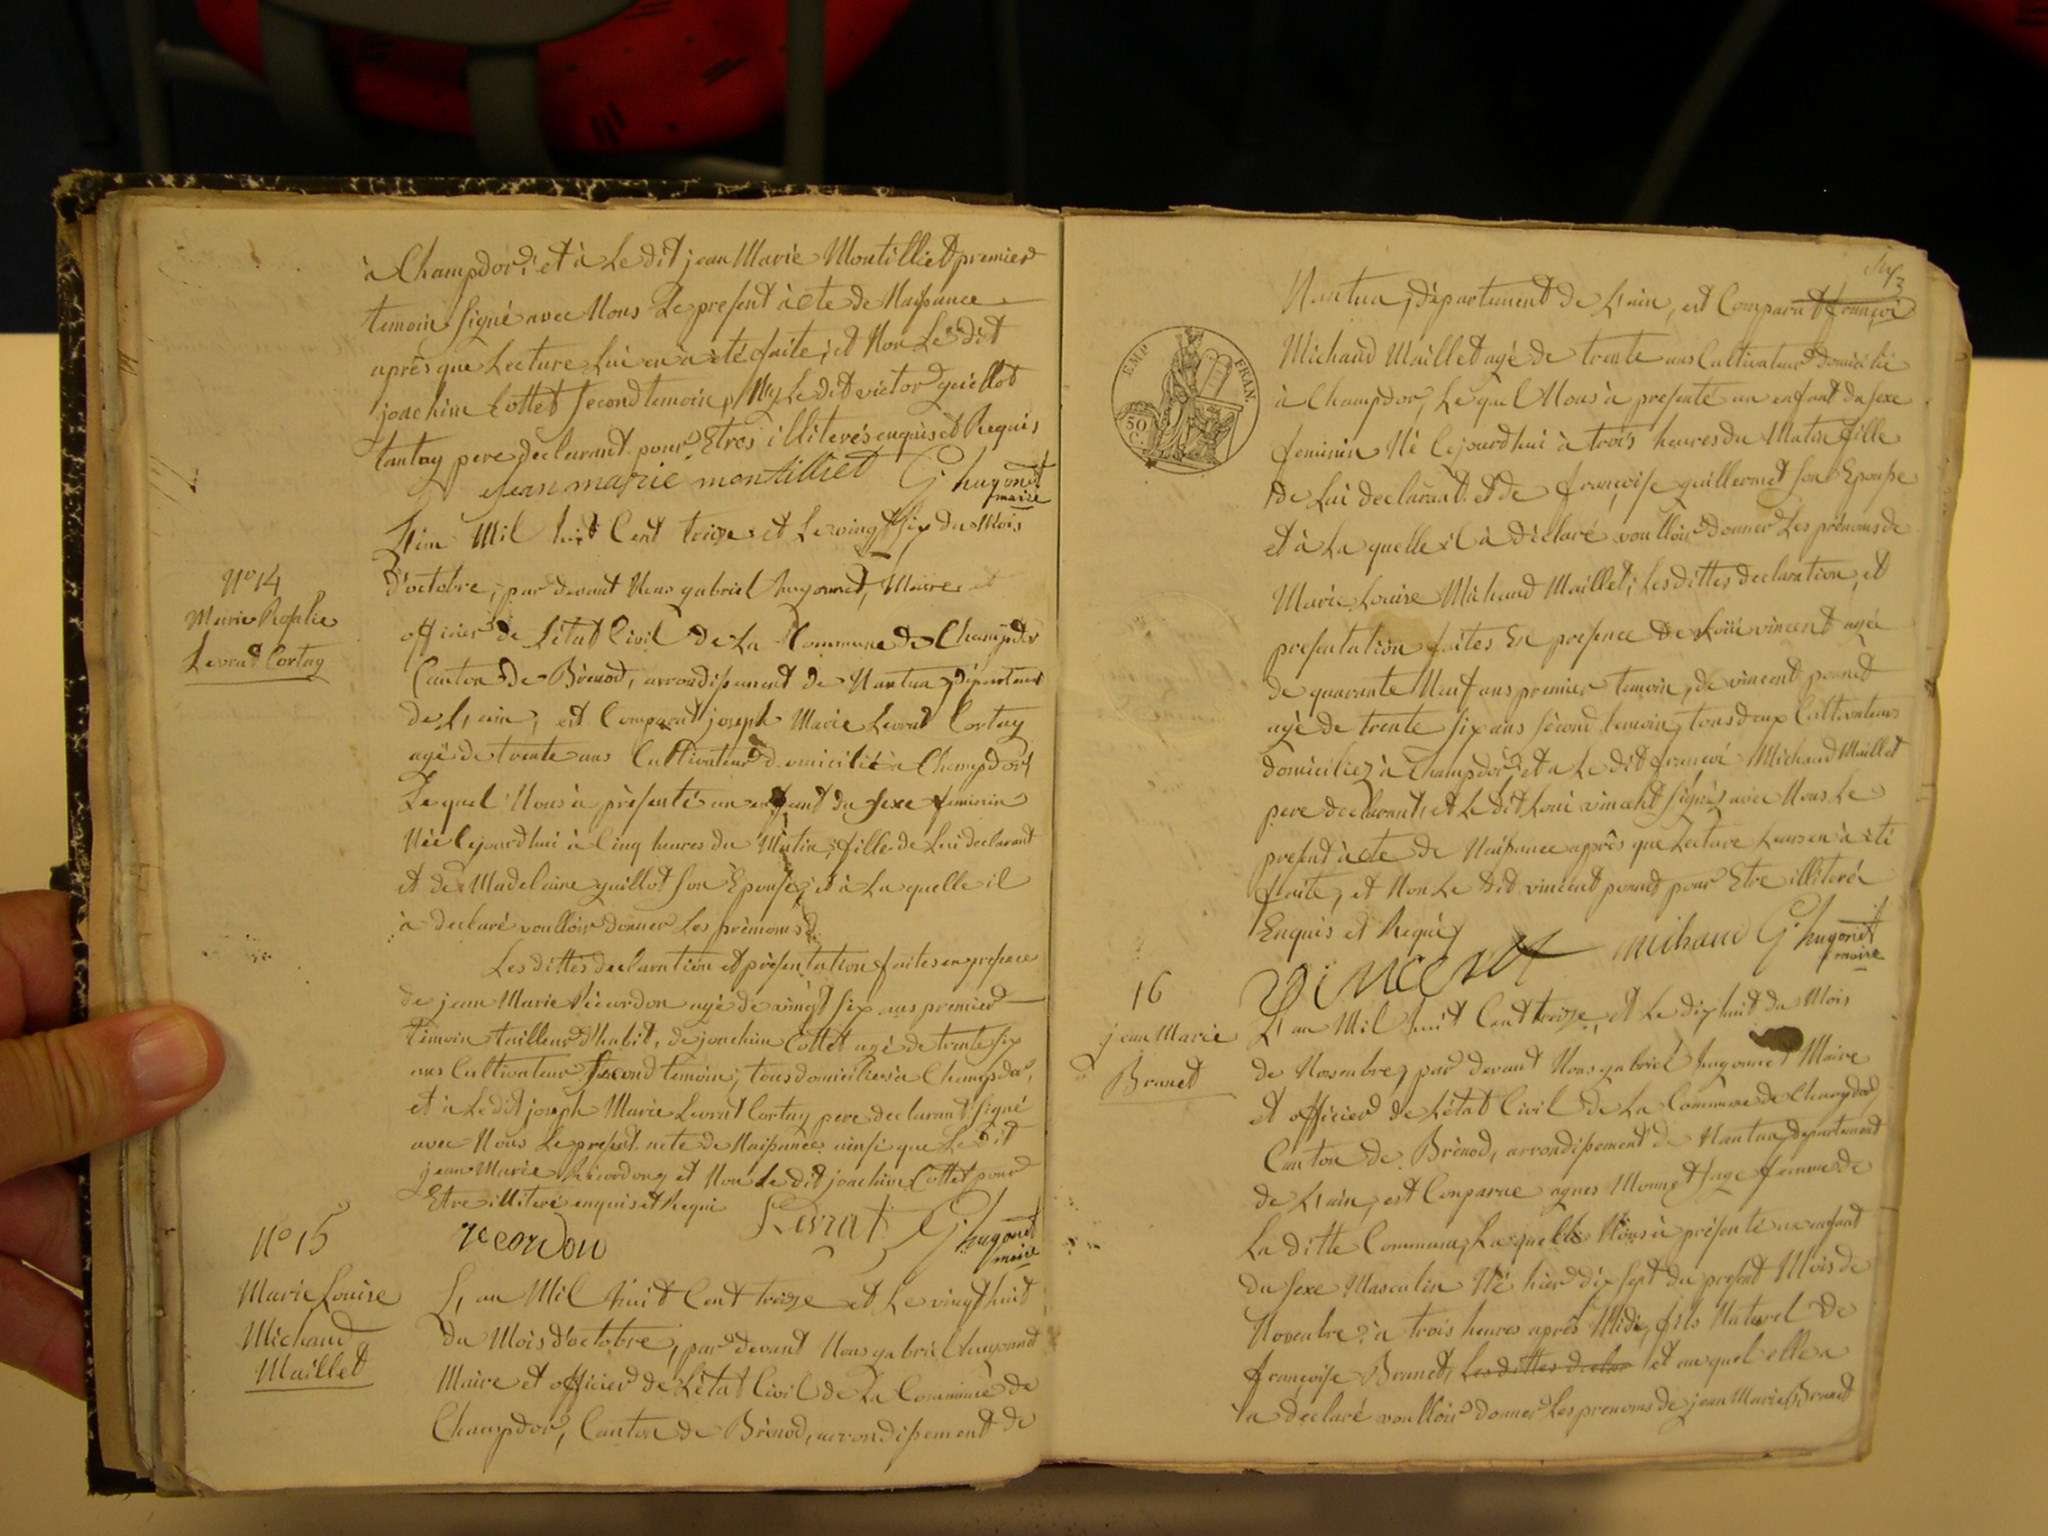 à Champdor; et à Ledit jean Marie Montilliet premier
temoin signé avec Nous Le present àcte de Naissance
après que Lecture Lui en à eté faite; et Non Ledit
joachim Cottet second temoin, Ny Ledit victor guillot
tantay pere declarant pour Etres illiterés enquis et Requis
jean marie montilliet G. hugonet
maire
L'an Mil huit Cent treize et Le vingt six du Mois
N° 14
Marie Rosalie
Levrat Cortay
d'octobre, par devant Nous gabriel hugonnet, Maire et
officier de L'état Civil de La Commune de Champdor
Canton de Brénod, arrondissement de Nantua, département
de L'ain, est Comparut joseph Marie Levrat Cortay
agé de trente ans Cultivateur domicilié à Champdor,
Le quel Nous à présenté un enfant du sexe feminin
Née Cejourdhui à Cinq heures du Matin, fille de Lui declarant
et de Madelaine guillot son Epouse, et à La quelle il
à declaré voulloir donner Les prénoms d
Les dittes declaration et présentation faites en presence
de jean Marie Récordon agé de vingt six ans premier
témoin tailleur d'habit, de joachim Cottet agé de trente six
ans Cultivateur second temoin, tous domiciliés à Champdor,
et à Ledit joseph Marie Levrat Cortay pere declarant signé
avec Nous Le present acte de Naissance ainsi que Ledit
jean Marie Récordon, et Non Ledit joachim Cottet pour
Etre illiteré enquis et Requi
recordon Levrat G. hugonet
maire
N° 15
Marie Louise
Michaud
Maillet
L'an Mil huit Cent treize et Le vingt huit
du Mois d'octobre, par devant Nous gabriel hugonnet
Maire et officier de L'état Civil de La Commune de
Champdor, Canton de Brénod, arrondissement de
EMP. FRAN.
50 C.
Nantua, département de L'ain, est Comparut françoi
Michaud Maillet agé de trente ans Cultivateur domicilié
à Champdor, Lequel Nous à presenté un enfant du sexe
feminin Né Cejourdhui à trois heures du Matin fille
de Lui declarant et de françoise guillermet son Epouse
et à La quelle il à déclaré voulloir donner Les prénoms de
Marie Louise Michaud Maillet; Les dittes declaration, et
presentation faites En presence de Loui vincent agé
de quarante Neuf ans premier temoin, de vincent ponnet
agé de trente six ans sécond temoin, tous deux Cultivateurs
domiciliez à Champdor, et a Le dit françoi Michaud Maillet
pere declarant, et Le dit Loui vincent signés avec Nous Le
present àcte de Naissance après que Lecture Leurs en à eté
faite, et Non Le dit vincent ponnet pour Etre illiteré
Enquis et Requis
vincent michaud G. hugonet
maire
16
jean Marie
Brunet
L'an Mil huit Cent treize, et Le dix huit du Mois
de Novembre, par devant Nous gabriel hugonnet Maire
et officier de L'état Civil de La Commune de Champdor
Canton de Brénod, arrondissement de Nantua, departement
de L'ain, est Comparue agnes Monnet sage femme de
La ditte Commune, Laquelle Nous à présenté un enfant
du sexe Masculin Né hier dix sept du present Mois de
Novembre à trois heures après Midi, fils Naturel de
françoise Brunet, Les dittes declar et au quel elle a
a declaré voulloir donner Les prenoms de jean Marie Brunet